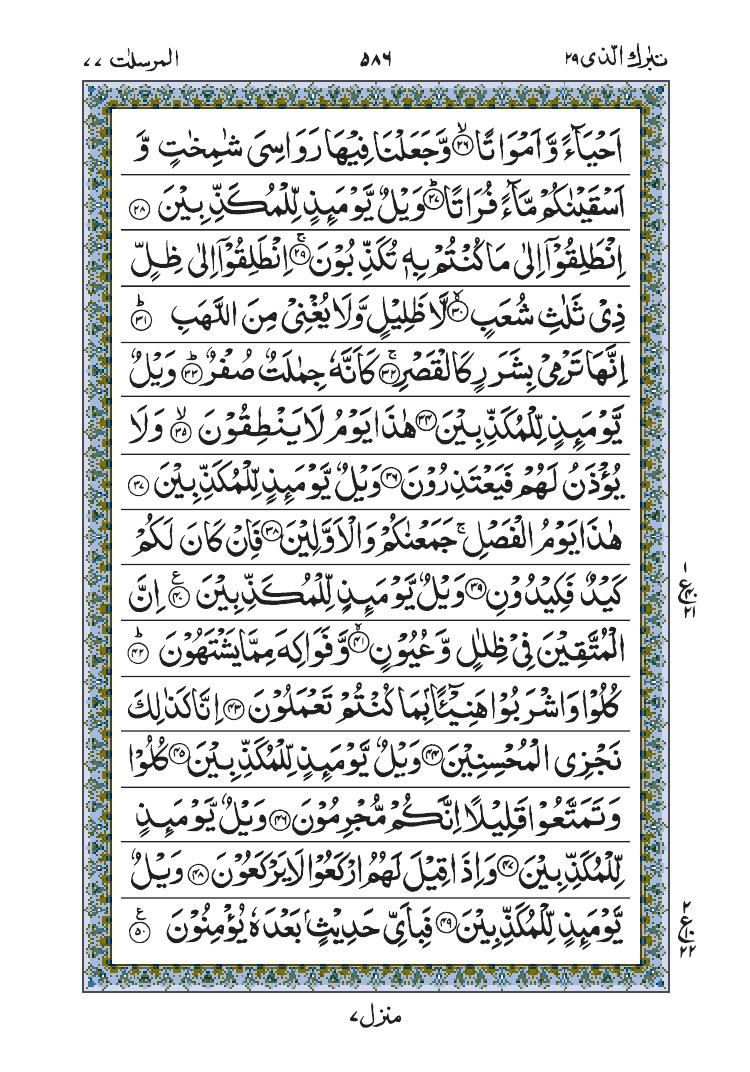 تبٰرك الّذی ۲۹ ۵۸۶ المرسلٰت ۷۷
اَحْيَآءً وَّاَمْوَاتًا ۙ﴿۲۶﴾ وَّجَعَلْنَا فِيْهَا رَوَاسِیَ شٰمِخٰتٍ وَّ
اَسْقَيْنٰكُمْ مَّآءً فُرَاتًا ؕ﴿۲۷﴾ وَيْلٌ يَّوْمَئِذٍ لِّلْمُكَذِّبِيْنَ ﴿۲۸﴾
اِنْطَلِقُوْۤا اِلٰى مَا كُنْتُمْ بِهٖ تُكَذِّبُوْنَ ۚ﴿۲۹﴾ اِنْطَلِقُوْۤا اِلٰى ظِلٍّ
ذِیْ ثَلٰثِ شُعَبٍ ۙ﴿۳۰﴾ لَّا ظَلِيْلٍ وَّلَا يُغْنِیْ مِنَ اللَّهَبِ ؕ﴿۳۱﴾
اِنَّهَا تَرْمِیْ بِشَرَرٍ كَالْقَصْرِ ۚ﴿۳۲﴾ كَاَنَّهٗ جِمٰلَتٌ صُفْرٌ ؕ﴿۳۳﴾ وَيْلٌ
يَّوْمَئِذٍ لِّلْمُكَذِّبِيْنَ ﴿۳۴﴾ هٰذَا يَوْمُ لَا يَنْطِقُوْنَ ۙ﴿۳۵﴾ وَلَا
يُؤْذَنُ لَهُمْ فَيَعْتَذِرُوْنَ ﴿۳۶﴾ وَيْلٌ يَّوْمَئِذٍ لِّلْمُكَذِّبِيْنَ ﴿۳۷﴾
هٰذَا يَوْمُ الْفَصْلِ ۚ جَمَعْنٰكُمْ وَالْاَوَّلِيْنَ ﴿۳۸﴾ فَاِنْ كَانَ لَكُمْ
كَيْدٌ فَكِيْدُوْنِ ﴿۳۹﴾ وَيْلٌ يَّوْمَئِذٍ لِّلْمُكَذِّبِيْنَ ﴿۴۰﴾ۧ اِنَّ
۱ ع ۴۰ ۲۱
الْمُتَّقِيْنَ فِیْ ظِلٰلٍ وَّعُيُوْنٍ ۙ﴿۴۱﴾ وَّفَوَاكِهَ مِمَّا يَشْتَهُوْنَ ؕ﴿۴۲﴾
كُلُوْا وَاشْرَبُوْا هَنِيْٓئًۢا بِمَا كُنْتُمْ تَعْمَلُوْنَ ﴿۴۳﴾ اِنَّا كَذٰلِكَ
نَجْزِی الْمُحْسِنِيْنَ ﴿۴۴﴾ وَيْلٌ يَّوْمَئِذٍ لِّلْمُكَذِّبِيْنَ ﴿۴۵﴾ كُلُوْا
وَتَمَتَّعُوْا قَلِيْلًا اِنَّكُمْ مُّجْرِمُوْنَ ﴿۴۶﴾ وَيْلٌ يَّوْمَئِذٍ
لِّلْمُكَذِّبِيْنَ ﴿۴۷﴾ وَاِذَا قِيْلَ لَهُمُ ارْكَعُوْا لَا يَرْكَعُوْنَ ﴿۴۸﴾ وَيْلٌ
يَّوْمَئِذٍ لِّلْمُكَذِّبِيْنَ ﴿۴۹﴾ فَبِاَیِّ حَدِيْثٍۭ بَعْدَهٗ يُؤْمِنُوْنَ ﴿۵۰﴾ۧ
۲ ع ۱۰ ۲۲
منزل۷